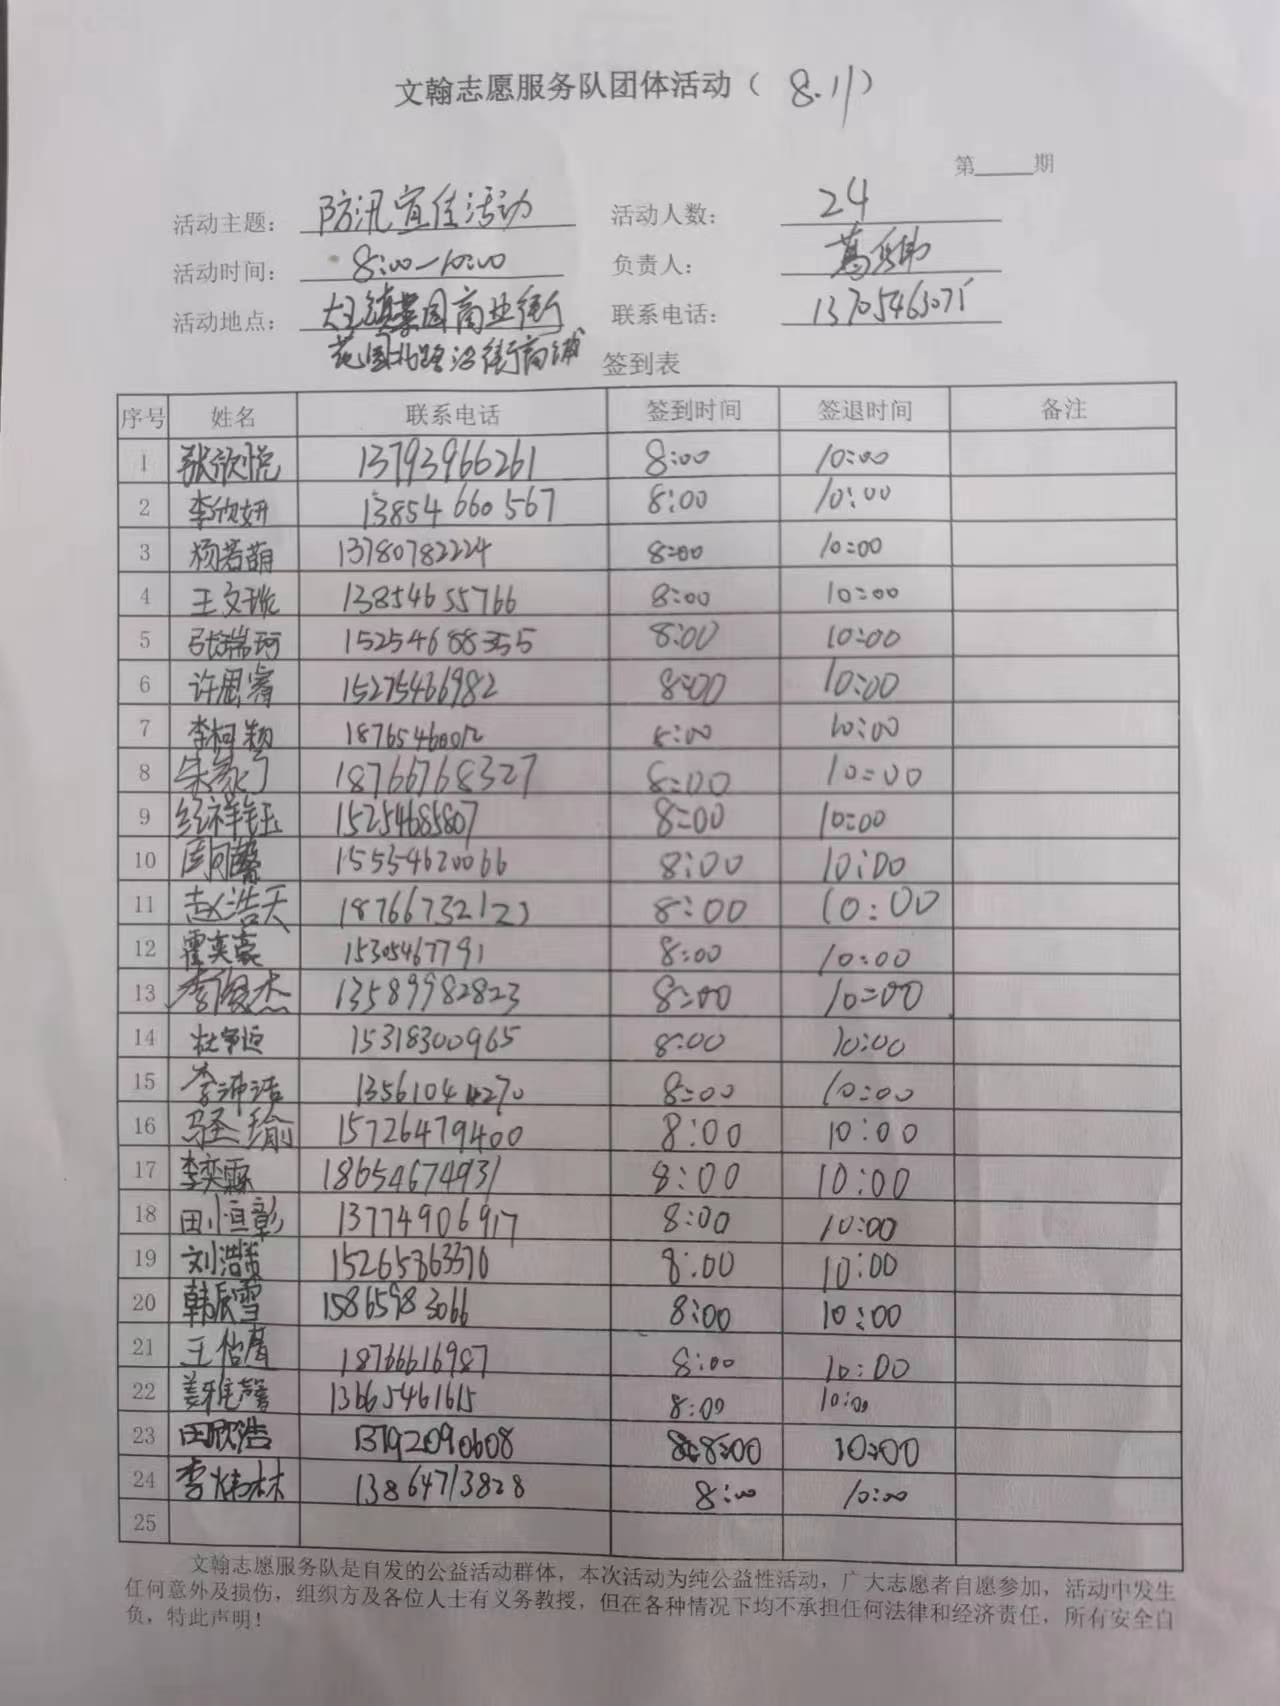 文翰志愿服务队团体活动（ 8.11）
第____期
活动主题： 防汛宣传活动 活动人数： 24
活动时间： 8:00—10:00 负责人： 葛
活动地点： 大王镇菜园商业街 联系电话： 13705463071
花园北路沿街商铺 签到表
序号 姓名 联系电话 签到时间 签退时间 备注
1 张欣悦 13793966261 8:00 10:00
2 李欣妍 13854660567 8:00 10:00
3 杨若萌 13780782224 8:00 10:00
4 王文璇 13854655766 8:00 10:00
5 张瑞珂 15254688355 8:00 10:00
6 许思睿 15275466982 8:00 10:00
7 李柯颖 18765460012 8:00 10:00
8 18766768327 8:00 10:00
9 祥钰 15254685807 8:00 10:00
10 周阿馨 15554620066 8:00 10:00
11 赵浩天 18766732123 8:00 10:00
12 霍奕豪 15305467791 8:00 10:00
13 李俊杰 13589982823 8:00 10:00
14 15318300965 8:00 10:00
15 李沛洁 13561044270 8:00 10:00
16 瑜 15726479400 8:00 10:00
17 李奕霖 18654674931 8:00 10:00
18 田恒彰 13774906917 8:00 10:00
19 刘浩 15265863370 8:00 10:00
20 韩辰雪 15865983066 8:00 10:00
21 王怡 18766616987 8:00 10:00
22 姜雅馨 13665461615 8:00 10:00
23 田欣浩 13792090608 8:00 10:00
24 李炜林 13864713828 8:00 10:00
25
文翰志愿服务队是自发的公益活动群体，本次活动为纯公益性活动，广大志愿者自愿参加，活动中发生
任何意外及损伤，组织方及各位人士有义务教授，但在各种情况下均不承担任何法律和经济责任，所有安全自
负，特此声明！